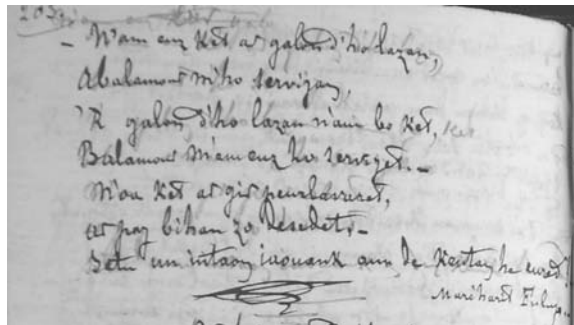 - N'am euz ket ar galon d'ho lazan,
Abalamour m'ho servijan,
'R galon d'ho lazan n'am bo ket,
Balamour m'am euz ho servijet. -
N'oa ket ar gir peurlavaret,
ar paz bihan zo
Setu un intaon iaouank ann de kentan he eured!
Marc'harit Fulup. -